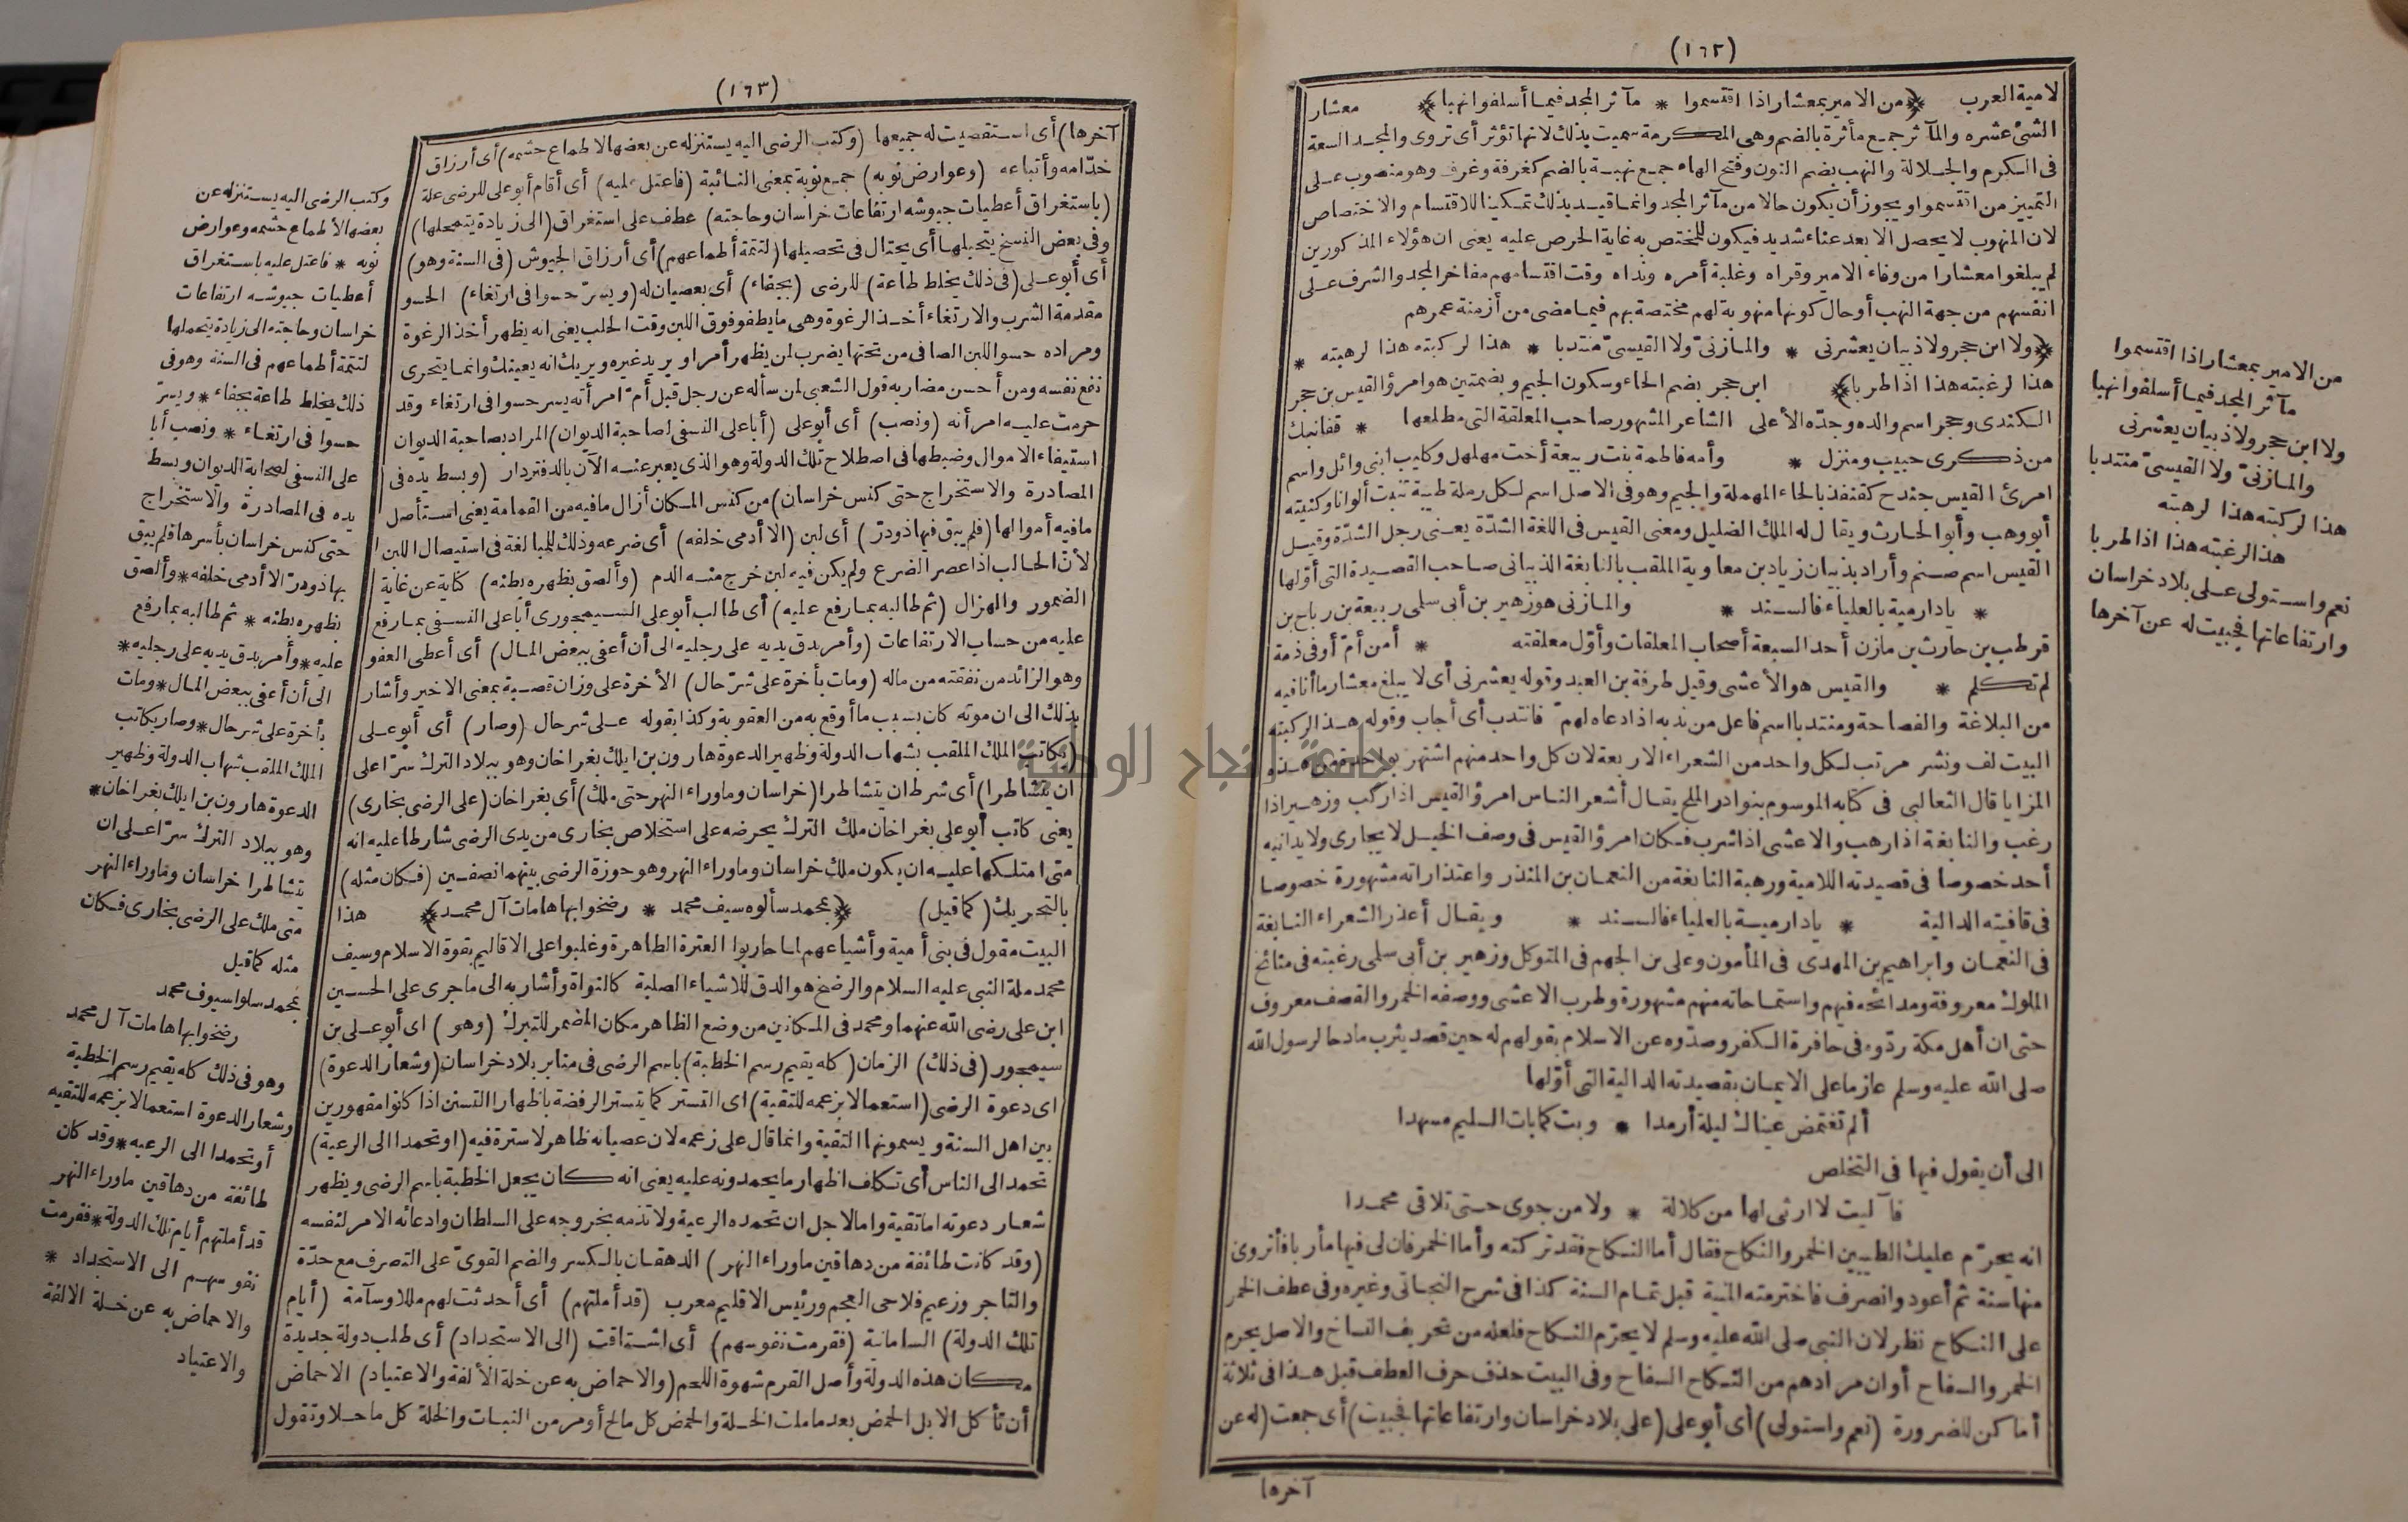 (١٦٢)
لامية العرب ﴿من الامير بمعشار اذا اقتسموا * مآثر المجد فيما أسلفوا نهبا﴾ معشار
الشئ عشره والمآثر جمع مأثرة بالضم وهى المكرمة سميت بذلك لانها تؤثر أى تروى والمجد السعة
فى الكرم والجلالة والنهب بضم النون وفتح الهاء جمع نهبة بالضم كغرفة وغرف وهو منصوب على
التمييز من اقتسموا ويجوز أن يكون حالا من مآثر المجد وانما قيد بذلك تمكينا للاقتسام والاختصاص
لان المنهوب لا يحصل الا بعد عناء شديد فيكون للمختص به غاية الحرص عليه يعنى ان هؤلاء المذكورين
لم يبلغوا معشارا من وفاء الامير وقراه وغلبة أمره ونداه وقت اقتسامهم مفاخر المجد والشرف على
انفسهم من جهة النهب أو حال كونها منهوبة لهم مختصة بهم فيما مضى من أزمنة عمرهم
﴿ولا ابن حجر ولا ذبيان يعشرنى * والمازنىّ ولا القيسىّ منتدبا * هذا لركبته هذا لرهبته *
هذا لرغبته هذا اذا طربا﴾ ابن حجر بضم الحاء وسكون الجيم وبضمتين هو امرؤ القيس بن حجر
الكندى وحجر اسم والده وجدّه الأعلى الشاعر المشهور صاحب المعلقة التى مطلعها * قفانبك
من ذكرى حبيب ومنزل * وأمه فاطمة بنت ربيعة أخت مهلهل وكليب ابنى وائل واسم
امرئ القيس جندح كقنفذ بالحاء المهملة والجيم وهو فى الاصل اسم لكل رملة طيبة تنبت ألوانا وكنيته
أبو وهب وأبو الحارث ويقال له الملك الضليل ومعنى القيس فى اللغة الشدّة يعنى رجل الشدّة وقيل
القيس اسم صنم وأراد بذبيان زياد بن معاوية الملقب بالنابغة الذبيانى صاحب القصيدة التى أوّلها
* يا دارمية بالعلياء فالسند * والمازنى هو زهير بن أبى سلمى ربيعة بن رباح بن
قرط بن حارث بن مازن أحد السبعة أصحاب المعلقات وأوّل معلقته * أمن أمّ أوفى ذمة
لم تكلم * والقيس هو الأعشى وقيل طرفة بن العبد وقوله يعشرنى أى لا يبلغ معشار ما أنا فيه
من البلاغة والفصاحة ومنتدبا اسم فاعل من ندبه اذا دعاه لهمّ فانتدب أى أجاب وقوله هذا لركبته
البيت لف ونشر مرتب لكل واحد من الشعراء الاربعة لان كل واحد منهم اشتهر
المزايا قال الثعالبى فى كتابه الموسوم بنوادر الملح يقال أشعر الناس امرؤ القيس اذا ركب وزهير اذا
رغب والنابغة اذا رهب والاعشى اذا شرب فكان امرؤ القيس فى وصف الخيل لا يجارى ولا يدانيه
أحد خصوصا فى قصيدته اللامية ورهبة النابغة من النعمان بن المنذر واعتذاراته مشهورة خصوصا
فى قافيته الدالية * يا دارمية بالعلياء فالسند * ويقال أعذر الشعراء النابغة
فى النعمان وابراهيم بن المهدى فى المأمون وعلى بن الجهم فى المتوكل وزهير بن أبى سلمى رغبته فى منائح
الملوك معروفة ومدائحه فيهم واستماحاته منهم مشهورة وطرب الاعشى ووصفه الخمر والقصف معروف
حتى ان أهل مكة ردّوه فى حافرة الكفر وصدّوه عن الاسلام بقولهم له حين قصد يثرب مادحا لرسول الله
صلى الله عليه وسلم عازما على الايمان بقصيدته الدالية التى أوّلها
ألم تغتمض عيناك ليلة أرمدا * وبت كما بات السليم مسهدا
الى أن يقول فيها فى التخلص
فآليت لا ارثى لها من كلالة * ولا من جوى حتى تلاقى محمدا
انه يحرّم عليك الطيبين الخمر والنكاح فقال أما النكاح فقد تركته وأما الخمر فان لى فيها مأربا فأتروى
منها سنة ثم أعود وانصرف فاخترمته المنية قبل تمام السنة كذا فى شرح النجاتى وغيره وفى عطف الخمر
على النكاح نظر لان النبى صلى الله عليه وسلم لا يحرّم النكاح فلعله من تحريف النساخ والاصل يحرم
الخمر والسفاح أو ان مرادهم من النكاح السفاح وفى البيت حذف حرف العطف قبل هذا فى ثلاثة
أماكن للضرورة (نعم واستولى) أى أبو على (على بلاد خراسان وارتفاعاتها فجبيت) أى جمعت (له عن
آخرها
من الامير بمعشار اذا اقتسموا
مآثر المجد فيما أسلفوا نهبا
ولا ابن حجر ولا ذبيان يعشرنى
والمازنىّ ولا القيسىّ منتدبا
هذا لركبته هذا لرهبته
هذا لرغبته هذا اذا طربا
نعم واستولى على بلاد خراسان
وارتفاعاتها فجبيت له عن آخرها
(١٦٣)
آخرها) أى استقصيت له جميعها (وكتب الرضى اليه يستنزله عن بعضها لاطماع حشمه) أى أرزاق
خدّامه وأتباعه (وعوارض نوبه) جمع نوبة بمعنى النائبة (فاعتل عليه) أى أقام أبو على للرضى علة
(باستغراق أعطيات جيوشه ارتفاعات خراسان وحاجته) عطف على استغراق (الى زيادة يتمحلها)
وفى بعض النسخ يتحيلها أى يحتال فى تحصيلها (لتتمة أطماعهم) أى أرزاق الجيوش (فى السنة وهو)
أى أبو على (فى ذلك يخلط طاعة) للرضى (بجفاء) أى بعصيان له (ويسرّ حسوا فى ارتغاء) الحسو
مقدمة الشرب والارتغاء أخذ الرغوة وهى ما يطفو فوق اللبن وقت الحلب يعنى انه يظهر أخذ الرغوة
ومراده حسو اللبن الصافى من تحتها يضرب لمن يظهر أمرا ويريد غيره ويريك انه يعينك وانما يتحرى
نفع نفسه ومن أحسن مضاربه قول الشعبى لمن سأله عن رجل قبل أمّ امرأته يسر حسوا فى ارتغاء وقد
حرمت عليه امرأته (ونصب) أى أبو على (أبا على النسفى لصاحبة الديوان) المراد بصاحبة الديوان
استيفاء الاموال وضبطها فى اصطلاح تلك الدولة وهو الذى يعبر عنه الآن بالدفتردار (وبسط يده فى
المصادرة والاستخراج حتى كنس خراسان) من كنس المكان أزال ما فيه من القمامة يعنى استأصل
ما فيه أموالها (فلم يبق فيها ذودرّ) أى لبن (الا أدمى خلفه) أى ضرعه وذلك للمبالغة فى استيصال اللبن
لأن الحالب اذا عصر الضرع ولم يكن فيه لبن خرج منه الدم (وألصق بظهره بطنه) كناية عن غاية
الضمور والهزال (ثم طالبه بما رفع عليه) أى طالب أبو على السيمجورى أبا على النسفى بما رفع
عليه من حساب الارتفاعات (وأمر بدق يديه على رجليه الى أن أعفى ببعض المال) أى أعطى العفو
وهو الزائد من نفقته من ماله (ومات بأخرة على شرّ حال) الأخرة على وزان قصبة بمعنى الاخير وأشار
بذلك الى ان موته كان بسبب ما أوقع به من العقوبة وكذا بقوله على شر حال (وصار) أى أبو على
(يكاتب الملك الملقب بشهاب الدولة وظهير الدعوة هارون بن ايلك بغراخان وهو ببلاد الترك سرّا على
ان يتشاطرا) أى شرط ان يتشاطرا (خراسان وما وراء النهر حتى ملك) أى بغراخان (على الرضى بخارى)
يعنى كاتب أبو على بغراخان ملك الترك يحرضه على استخلاص بخارى من يدى الرضى شارطا عليه انه
متى امتلكها عليه ان يكون ملك خراسان وما وراء النهر وهو حوزة الرضى بينهما نصفين (فكان مثله)
بالتحريك (كما قيل) ﴿بمحمد سألوه سيف محمد * رضخوا بها هامات آل محمد﴾ هذا
البيت مقول فى بنى أمية وأشياعهم لما حاربوا العترة الطاهرة وغلبوا على الاقاليم بقوة الاسلام وسيف
محمد ملة النبى عليه السلام والرضخ هو الدق للاشياء الصلبة كالنواة وأشار به الى ما جرى على الحسين
ابن على رضى الله عنهما ومحمد فى المكانين من وضع الظاهر مكان المضمر للتبرك (وهو) اى أبو على بن
سيمجور (فى ذلك) الزمان (كله يقيم رسم الخطبة) باسم الرضى فى منابر بلاد خراسان (وشعار الدعوة)
اى دعوة الرضى (استعمالا بزعمه للتقية) اى التستر كما يتستر الرفضة باظهار التسنن اذا كانوا مقهورين
بين اهل السنة ويسمونها التقية وانما قال على زعمه لان عصيانه ظاهر لا سترة فيه (او تحمدا الى الرعية)
تحمد الى الناس أى تكلف اظهار ما يحمدونه عليه يعنى انه كان يجعل الخطبة باسم الرضى ويظهر
شعار دعوته اما تقية واما لاجل ان تحمده الرعية ولا تذمه بخروجه على السلطان وادعائه الامر لنفسه
(وقد كانت طائفة من دهاقين ما وراء النهر) الدهقان بالكسر والضم القوىّ على التصرف مع حدّة
والتاجر وزعيم فلاحى العجم ورئيس الاقليم معرب (قد أملتهم) أى أحدثت لهم مللا وسآمة (أيام
تلك الدولة) السامانية (فقرمت نفوسهم) أى اشتاقت (الى الاستجداد) أى طلب دولة جديدة
مكان هذه الدولة وأصل القرم شهوة اللحم (والاحماض به عن خلة الألفة والاعتياد) الاحماض
أن تأكل الابل الحمض بعد ما ملت الخلة والحمض كل مالح أو مر من النبات والخلة كل ما حلا وتقول
وكتب الرضى اليه يستنزله عن
بعضها لأطماع حشمه وعوارض
نوبه * فاعتل عليه باستغراق
أعطيات جيوشه ارتفاعات
خراسان وحاجته الى زيادة يتمحلها
لتتمة أطماعهم فى السنة وهو فى
ذلك يخلط طاعة بجفاء * ويسرّ
حسوا فى ارتغاء * ونصب أبا
على النسفى لصحابة الديوان وبسط
يده فى المصادرة والاستخراج
حتى كنس خراسان بأسرها فلم يبق
بها ذودرّ الا أدمى خلفه * وألصق
بظهره بطنه * ثم طالبه بما رفع
عليه * وأمر بدق يديه على رجليه *
الى أن أعفى ببعض المال * ومات
بأخرة على شر حال * وصار يكاتب
الملك الملقب شهاب الدولة وظهير
الدعوة هارون بن ايلك بغراخان *
وهو ببلاد الترك سرّا على ان
يتشاطرا خراسان وما وراء النهر
متى ملك على الرضى بخارى فكان
مثله كما قيل
بمحمد سلوا سيوف محمد
رضخوا بها هامات آل محمد
وهو فى ذلك كله يقيم رسم الخطبة
وشعار الدعوة استعمالا بزعمه للتقيه
أو تحمدا الى الرعيه * وقد كان
طائفة من دهاقين ما وراء النهر
قد أملتهم أيام تلك الدولة * فقرمت
نفوسهم الى الاستجداد *
والاحماض به عن خلة الالفة
والاعتياد
جامعة النجاح الوطنية